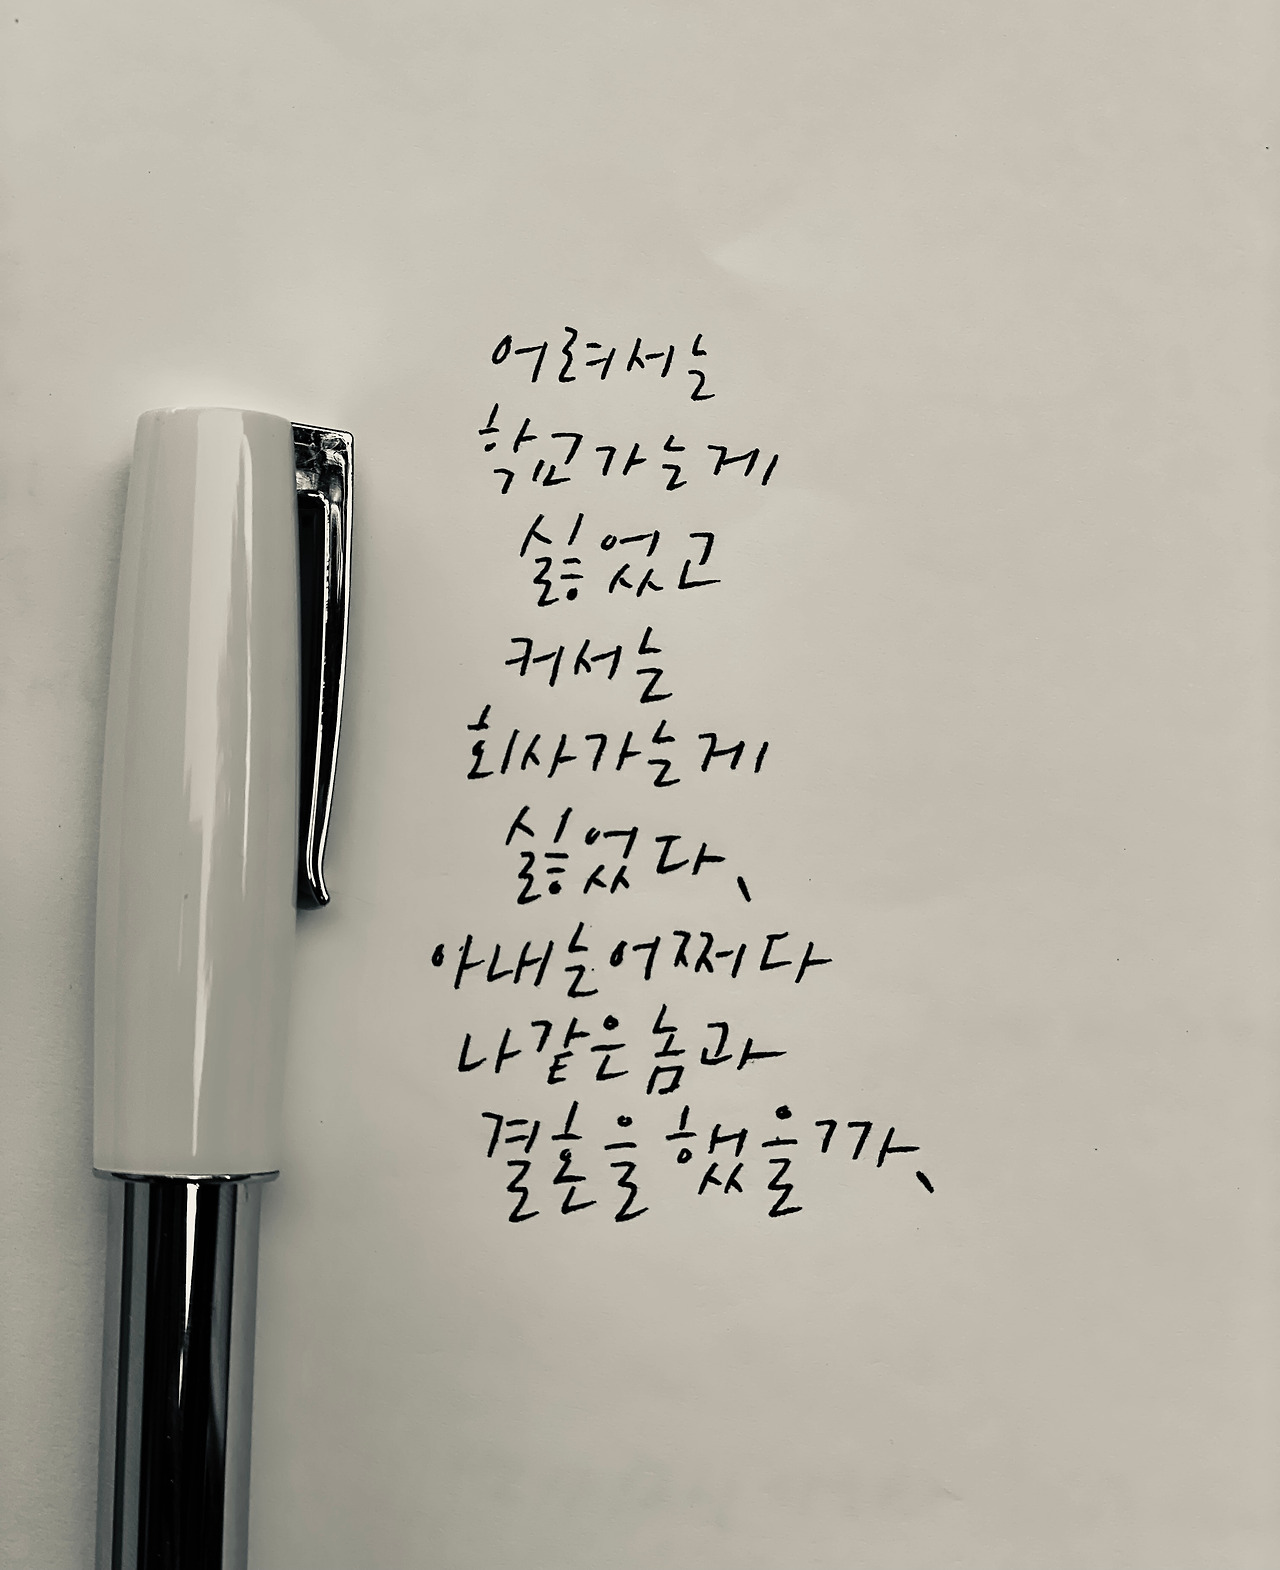 어려서는
학교가는게
싫었고
커서는
회사가는게
싫었다、
아내는어쩌다
나같은놈과
결혼을했을까、